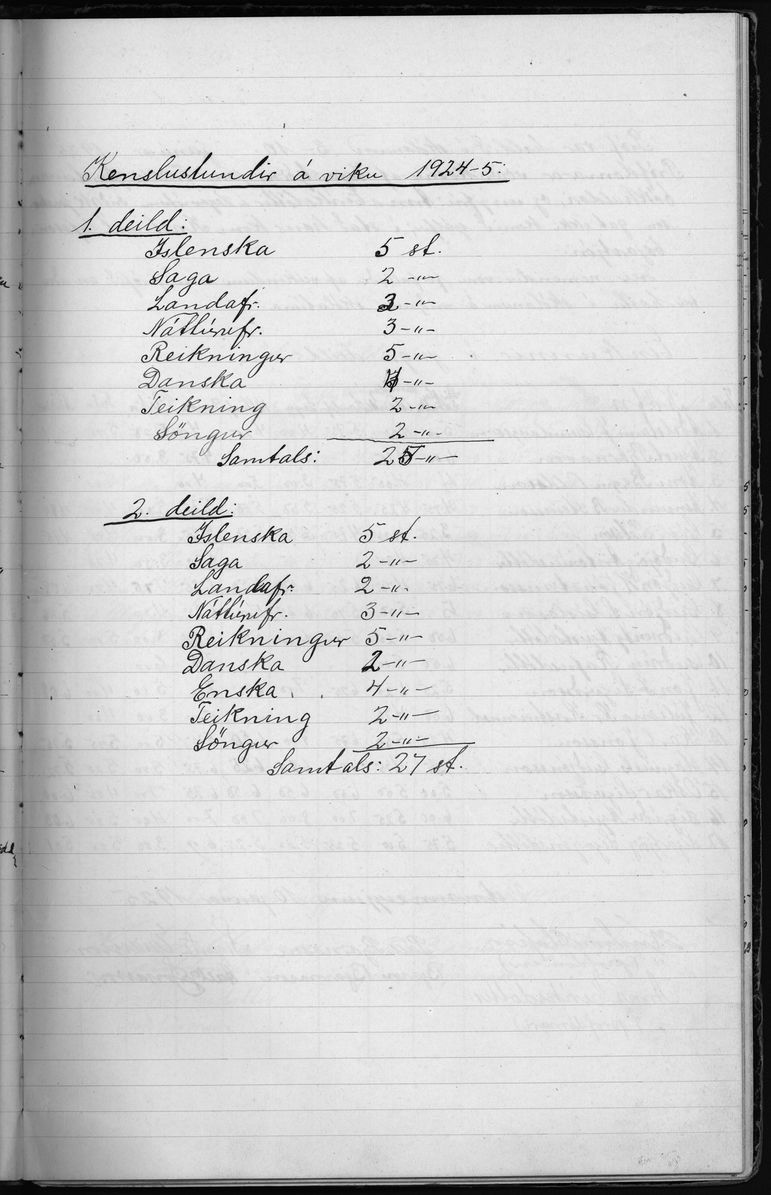 Kenslustundir á viku 1924-5:
1. deild:
Íslenska 5 st.
Saga 2 -"-
Landafr. 3 -"-
Náttúrufr. 3 -"-
Reikningur 5 -"-
Danska -"-
Teikning 2 -"-
Söngur 2 -"-
Samtals: 25 -"-
2. deild:
Íslenska 5 st.
Saga 2 -"-
Landafr. 2 -"-
Náttúrufr. 3 -"-
Reikningur 5 -"-
Danska 2 -"-
Enska 4 -"-
Teikning 2 -"-
Söngur 2 -"-
Samtals: 27 st.